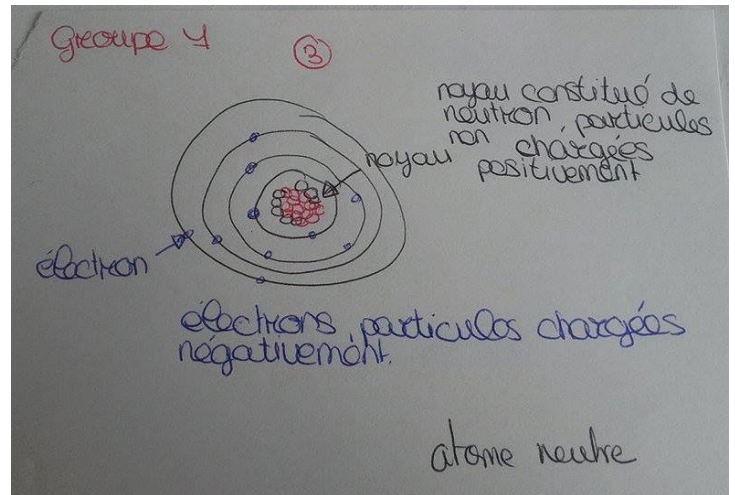 Groupe 1
3
noyau constitué de
neutron, particules
non chargées
positivement
noyau
électron
électrons, particules chargées
négativement.
atome neutre